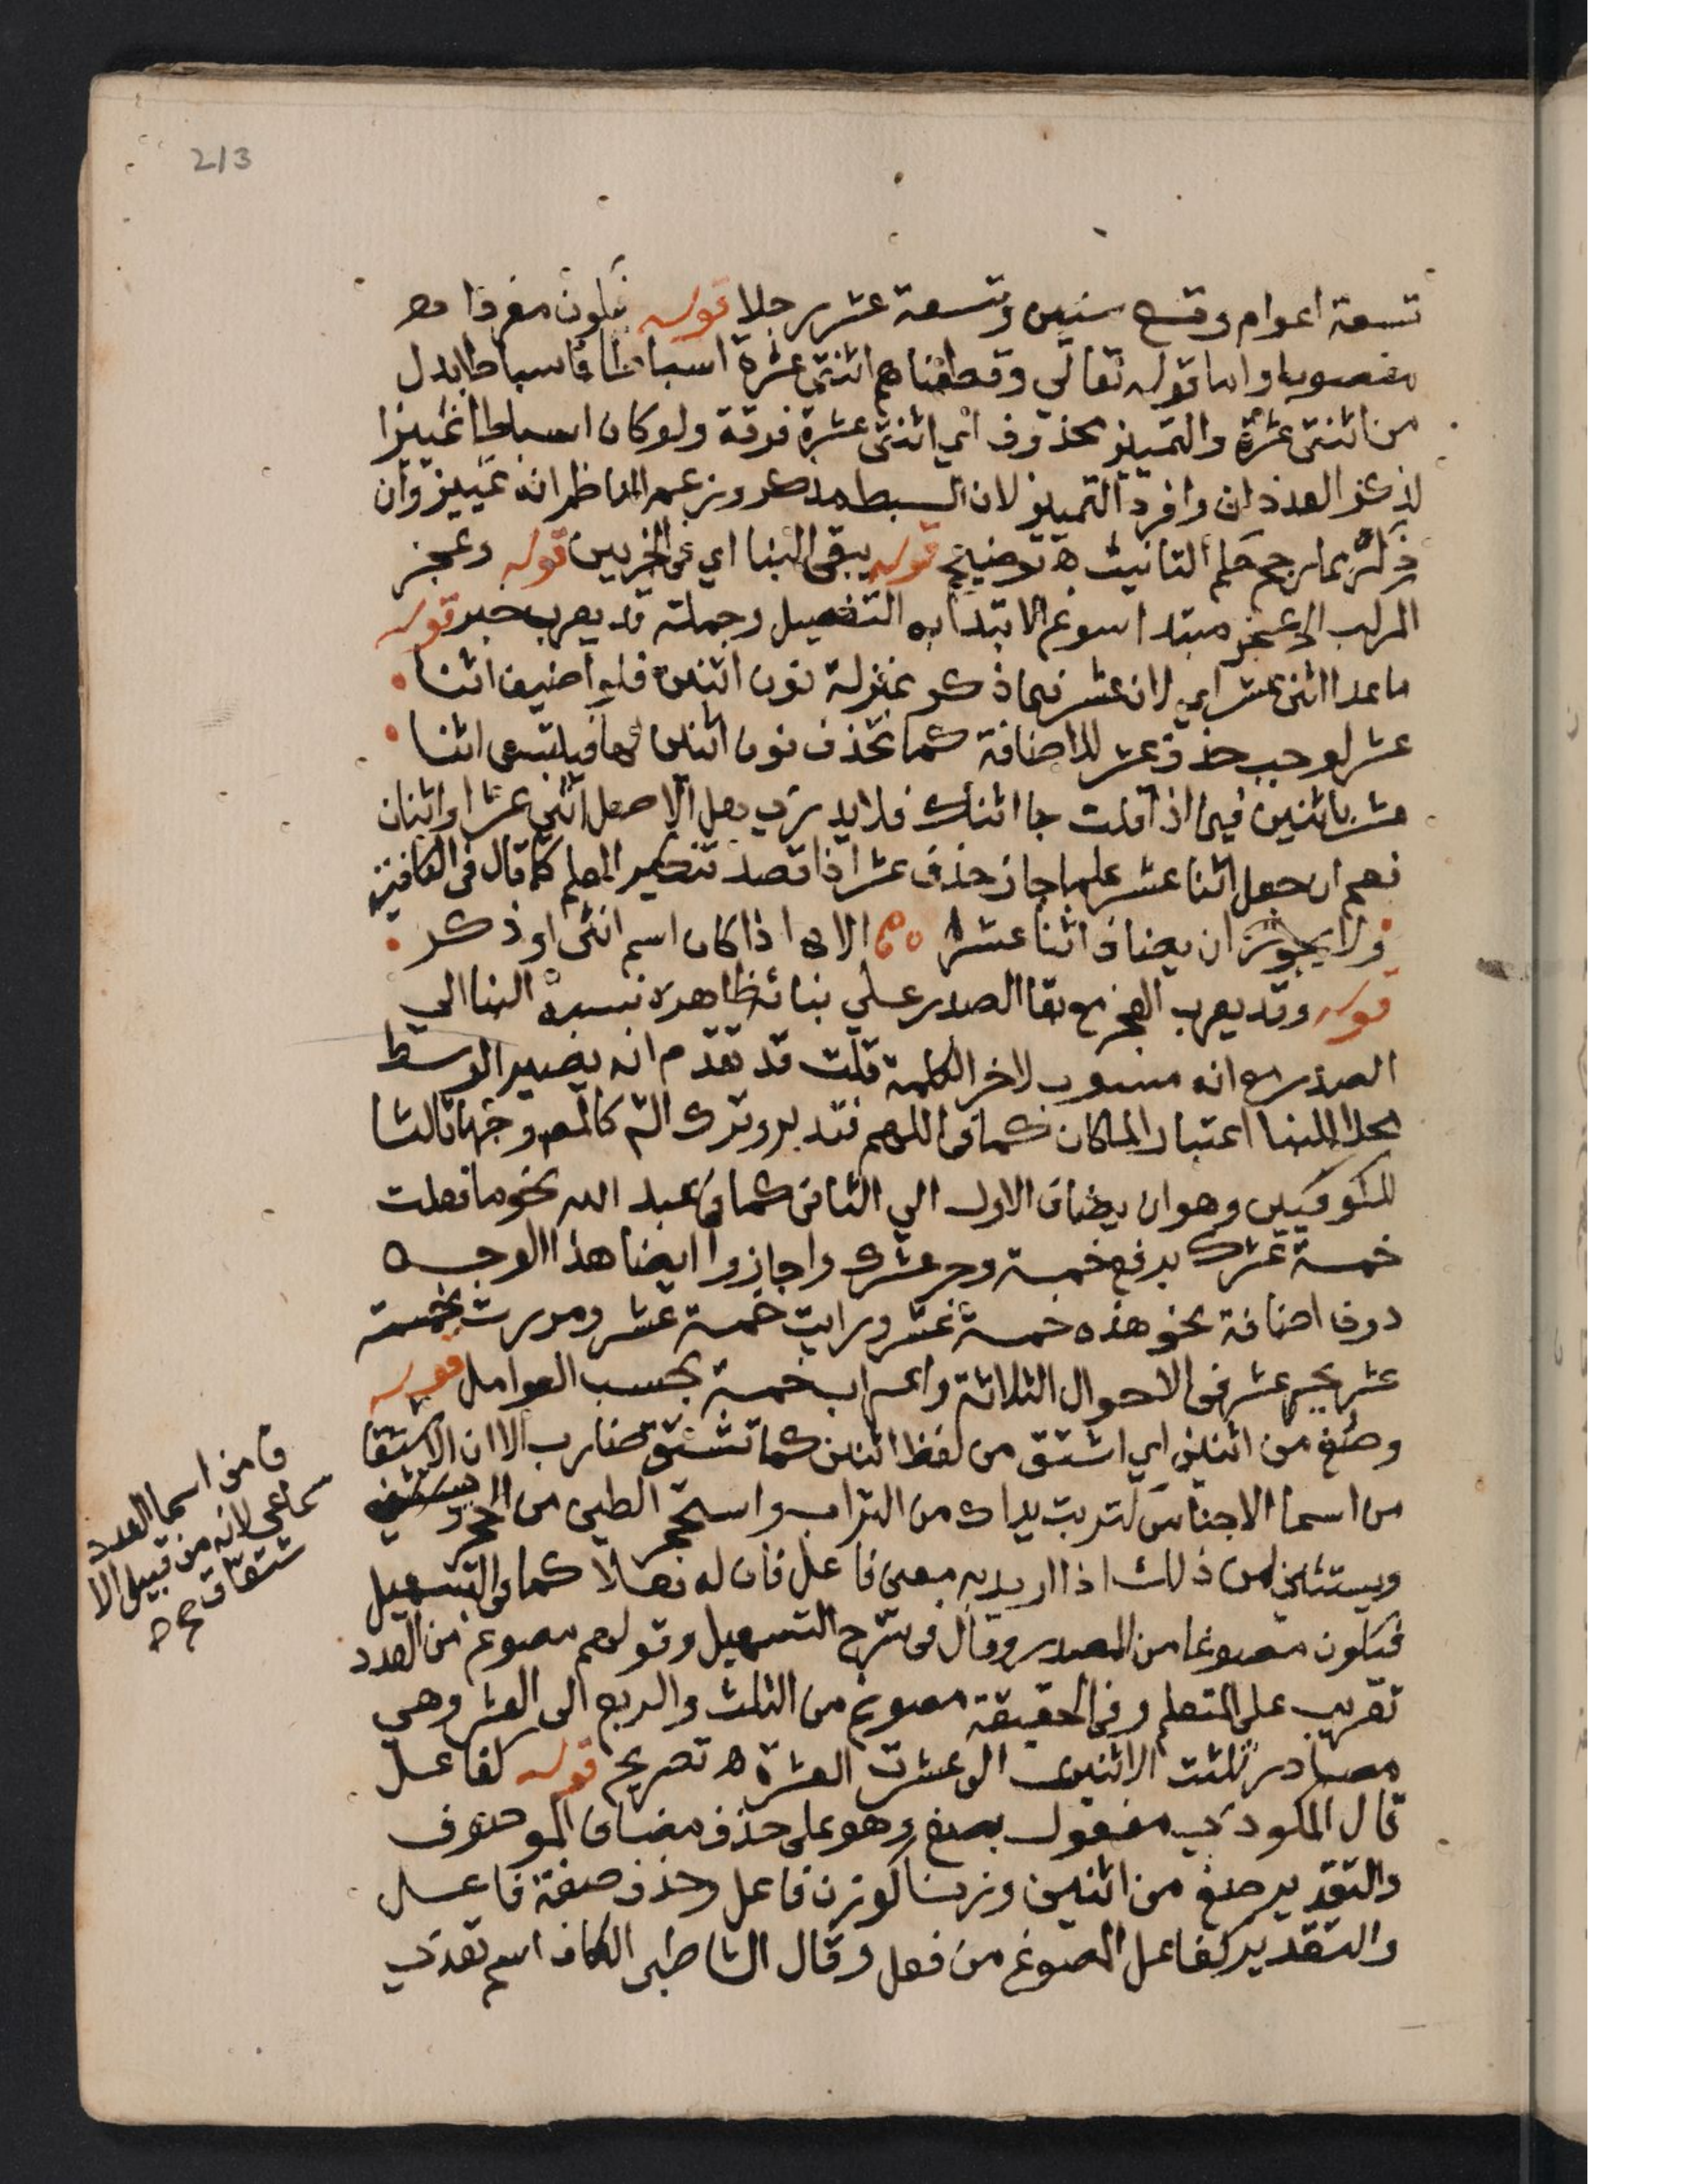 213
تسعة اعوام وتسع سنين وتسعة عشر رجلا قوله يكون مفردا
منصوبا واما قوله تعالى وقطعناهم اثنتي عشرة اسباطا فاسباطا بدل
من اثنتي عشرة والتمييز محذوف اي اثنتي عشرة فرقة ولو كان اسباطا تمييزا
لذكر العددان وافرد التمييز لان السبط مذكر وزعم الناظم انه تمييز وان
ذكر امما رجح حكم التانيث ه توضيح قوله يبقى البنا اي في الجزيين قوله وعجز
المركب اي عجز مبتدا سوغ الابتدا به التفصيل وجملة قد يعرب خبر قوله
ما عدا اثني عشر اي لان عشر فيما ذكر بمنزلة نون اثنين فلو اضيف اثنا
عشر لوجب حذف عشر للاضافة كما تحذف نون اثنين لها فيلتبس اثنا
عشر باثنين فيما اذا قلت جا اثناك فلا يدري هل الاصل اثني عشر او اثنان
نعم ان جعل اثنا عشر علما جاز حذف عشر اذا قصد تنكير العلم كما قال في الكافية
ولا يجوز ان يضاف اثنا عشرا الا اذا كان اسم انثى او ذكر
قوله وقد يعرب العجز مع بقا الصدر على بنائه ظاهره نسبة البنا الي
الصدر مع انه منسوب لاخر الكلمة قلت قد تقدم انه يصير الوسط
محلا للبنا اعتبار الماكان كما في اللهم فتدبر وترك الش كالمص وجها ثالثا
للكوفيين وهو ان يضاف الاول الي الثاني كما في عبد الله نحو ما فعلت
خمسة عشرك برفع خمسة وجر عشرك واجازوا ايضا هذا الوجه
دون اضافة نحو هذه خمسة عشر ورايت خمسة عشر ومررت بخمسة
عشر بجر عشر في الاحوال الثلاثة واعراب خمسة بحسب العوامل قوله
وصغ من اثنين اي اشتق من لفظ اثنين كما تشتق ضارب الا ان الاشتقا
ق من اسما العدد
سماعي لانه من قبيل الا
شتقاق صح ه
من اسما الاجناس كتربت يداك من التراب واستحجر الطين من الحجر
ويستثنى من ذلك اذا اريد به معنى فاعل فان له فعلا كما في التسهيل
فيكون مصوغا من المصدر وقال في شرح التسهيل وقولهم مصوغ من العدد
تقريب على المتعلم وفي الحقيقة مصوغ من الثلث والربع الى العشر وهي
مصادر ثلثت الاثنين الى عشرت العشرة ه تصريح قوله كفاعل
قال المكودي مفعول بصغ وهو على حذف مضاف الموصوف
والتقدير صغ من اثنين وزنا كوزن فاعل وحذف صفة فاعل
والتقدير كفاعل المصوغ من فعل وقال الشاطبى الكاف اسم تعدي